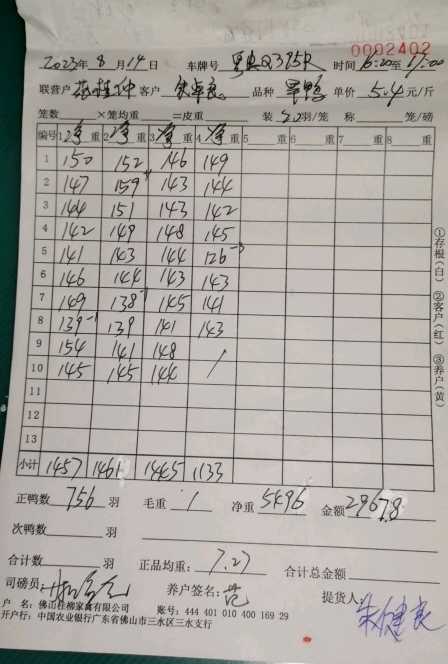 0002402
2023年8月14日 车牌号 粤EQ395R 时间 16:20至17:00
联营户 客户 朱卓良 品种 旱鸭 单价 5.4 元/斤
笼数 ×笼均重 =皮重 装 20 羽/笼 称 笼/磅
编号 1 净重 2 净重 3 净重 4 净重 5 重 6 重 7 重 8 重
1 150 152 146 149
2 147 159 143 144
3 144 151 143 142
4 142 149 148 145
5 141 143 144 126-3
6 146 144 143 143
7 149 138-1 145 141
8 139-1 139 141 143
9 154 141 148 /
10 145 145 144
11
12
13
小计 1457 1461 1445 1133
正鸭数 756 羽 毛重 / 净重 5496 金额 29678
次鸭数 羽
合计数 羽 正品均重: 7.27 合计总金额
司磅员: 养户签名: 范 提货人:
户 名: 佛山桂柳家禽有限公司 账号: 444 401 010 400 169 29
开户行: 中国农业银行广东省佛山市三水区三水支行
①存根(白) ②客户(红) ③养户(黄)